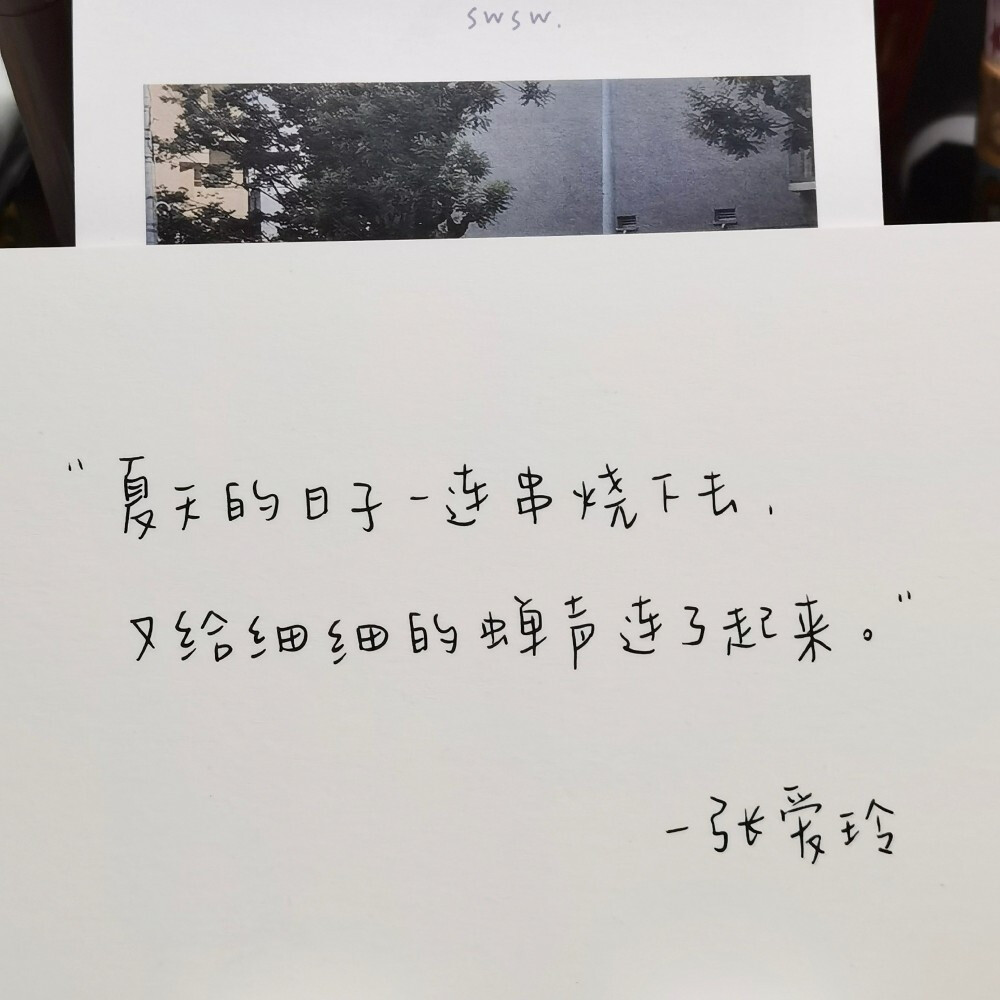 swsw.
"夏天的日子一连串烧下去,
又给细细的蝉声连了起来。"
-张爱玲